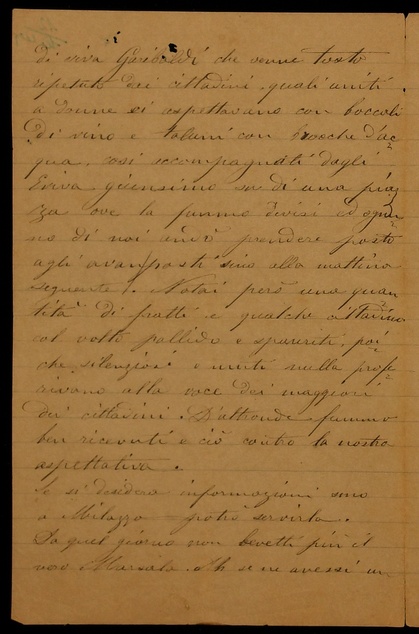 di viva Garibaldi che venne tosto
ripetuto dei cittadini quali uniti
a donne si aspettavano con boccoli
di vino e taluni con brocche d'ac
qua, così accompagnati dagli
Eviva giunsimo su di una piaz
za ove la fummo divisi ed ognu
no di noi andò prendere posto
agli avanposti sino alla mattina
seguente. Notai però una quan
tità di fratti e qualche cittadino
col volto pallido e spauriti, poi
che silenziosi e muti nulla profe
rivano alla voce dei maggiori
dei cittadini. D'altronde fummo
ben ricevuti e ciò contro la nostra
aspettativa.
Se si desidera informazioni sino
a Milazzo potrò servirla.
Da quel giorno non bevetti più il
vero Marsala. Ah se ne avessi un